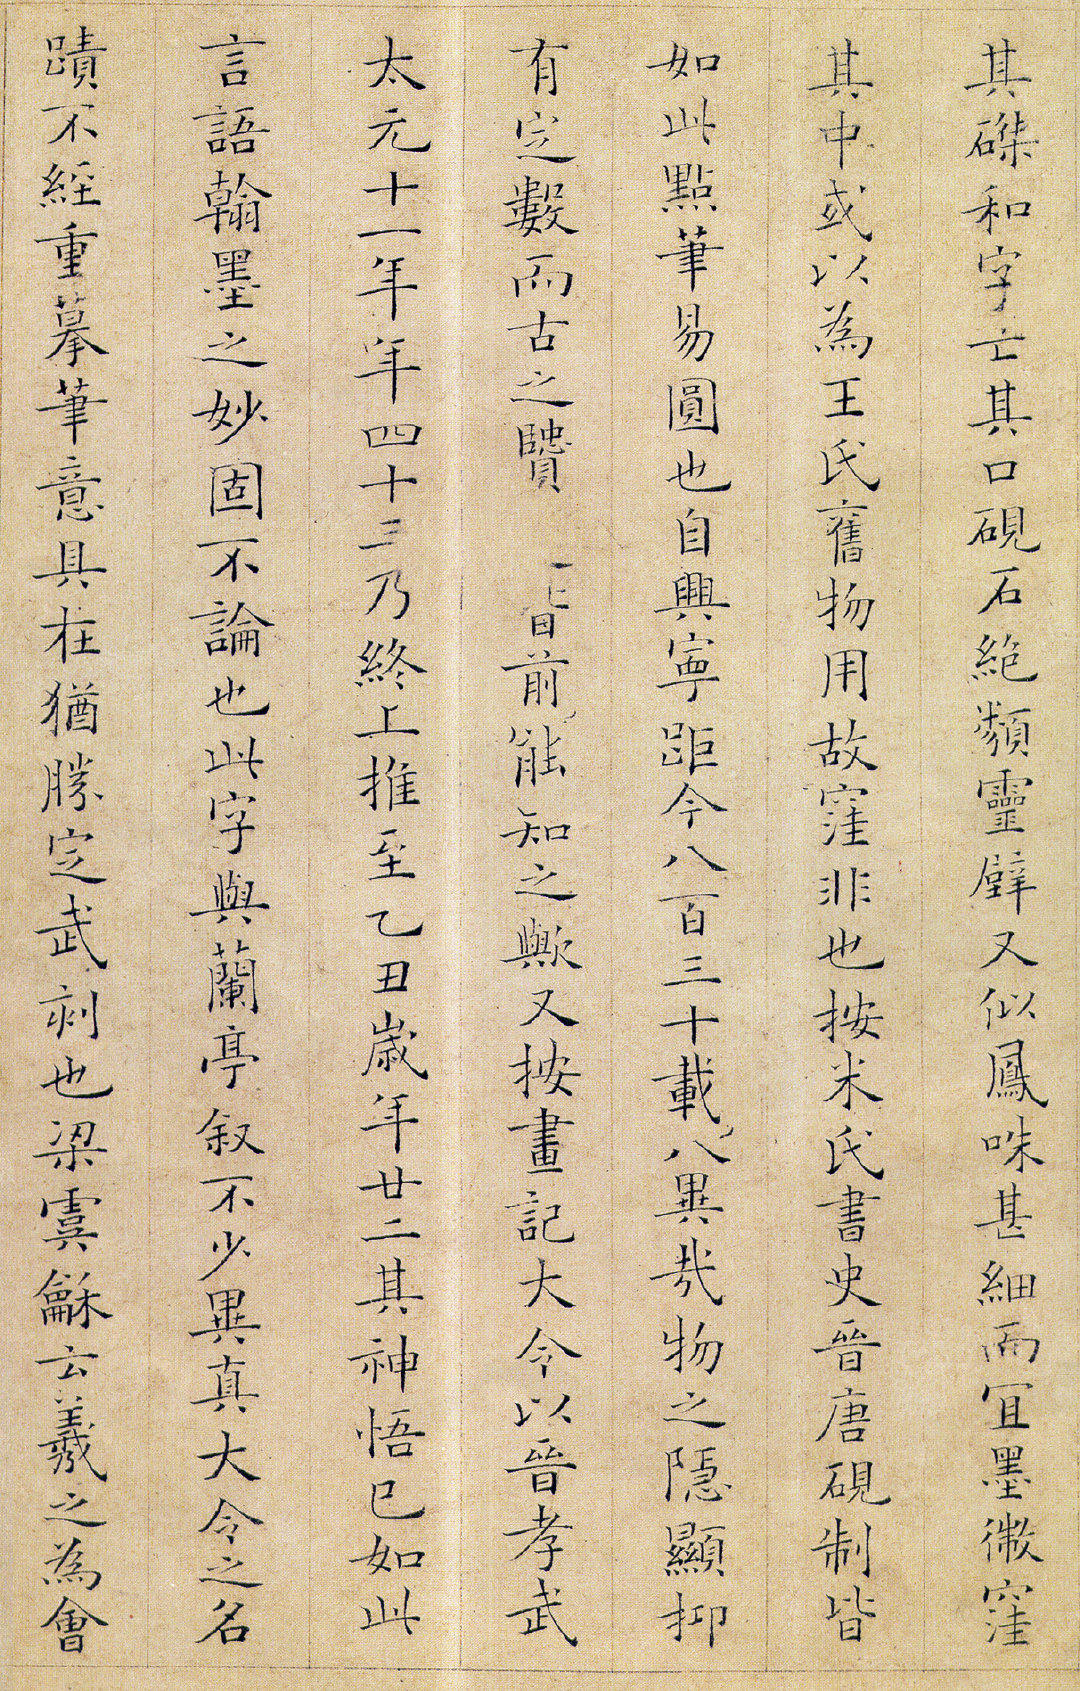 其磔和字亡其口硯石絶類靈壁又似鳳咮甚細而宜墨微窪
其中或以為王氏舊物用故窪非也按米氏書史晉唐硯制皆
如此點筆易圓也自興寧距今八百三十載八異哉物之隠顯抑
有定數而古之賢 昔前能知之歟又按畫記大令以晉孝武
太元十一年年四十三乃終上推至乙丑歳年廿二其神悟已如此
言語翰墨之妙固不論也此字與蘭亭叙不少異真大令之名
蹟不經重摹筆意具在猶勝定武刻也梁虞龢云羲之為會